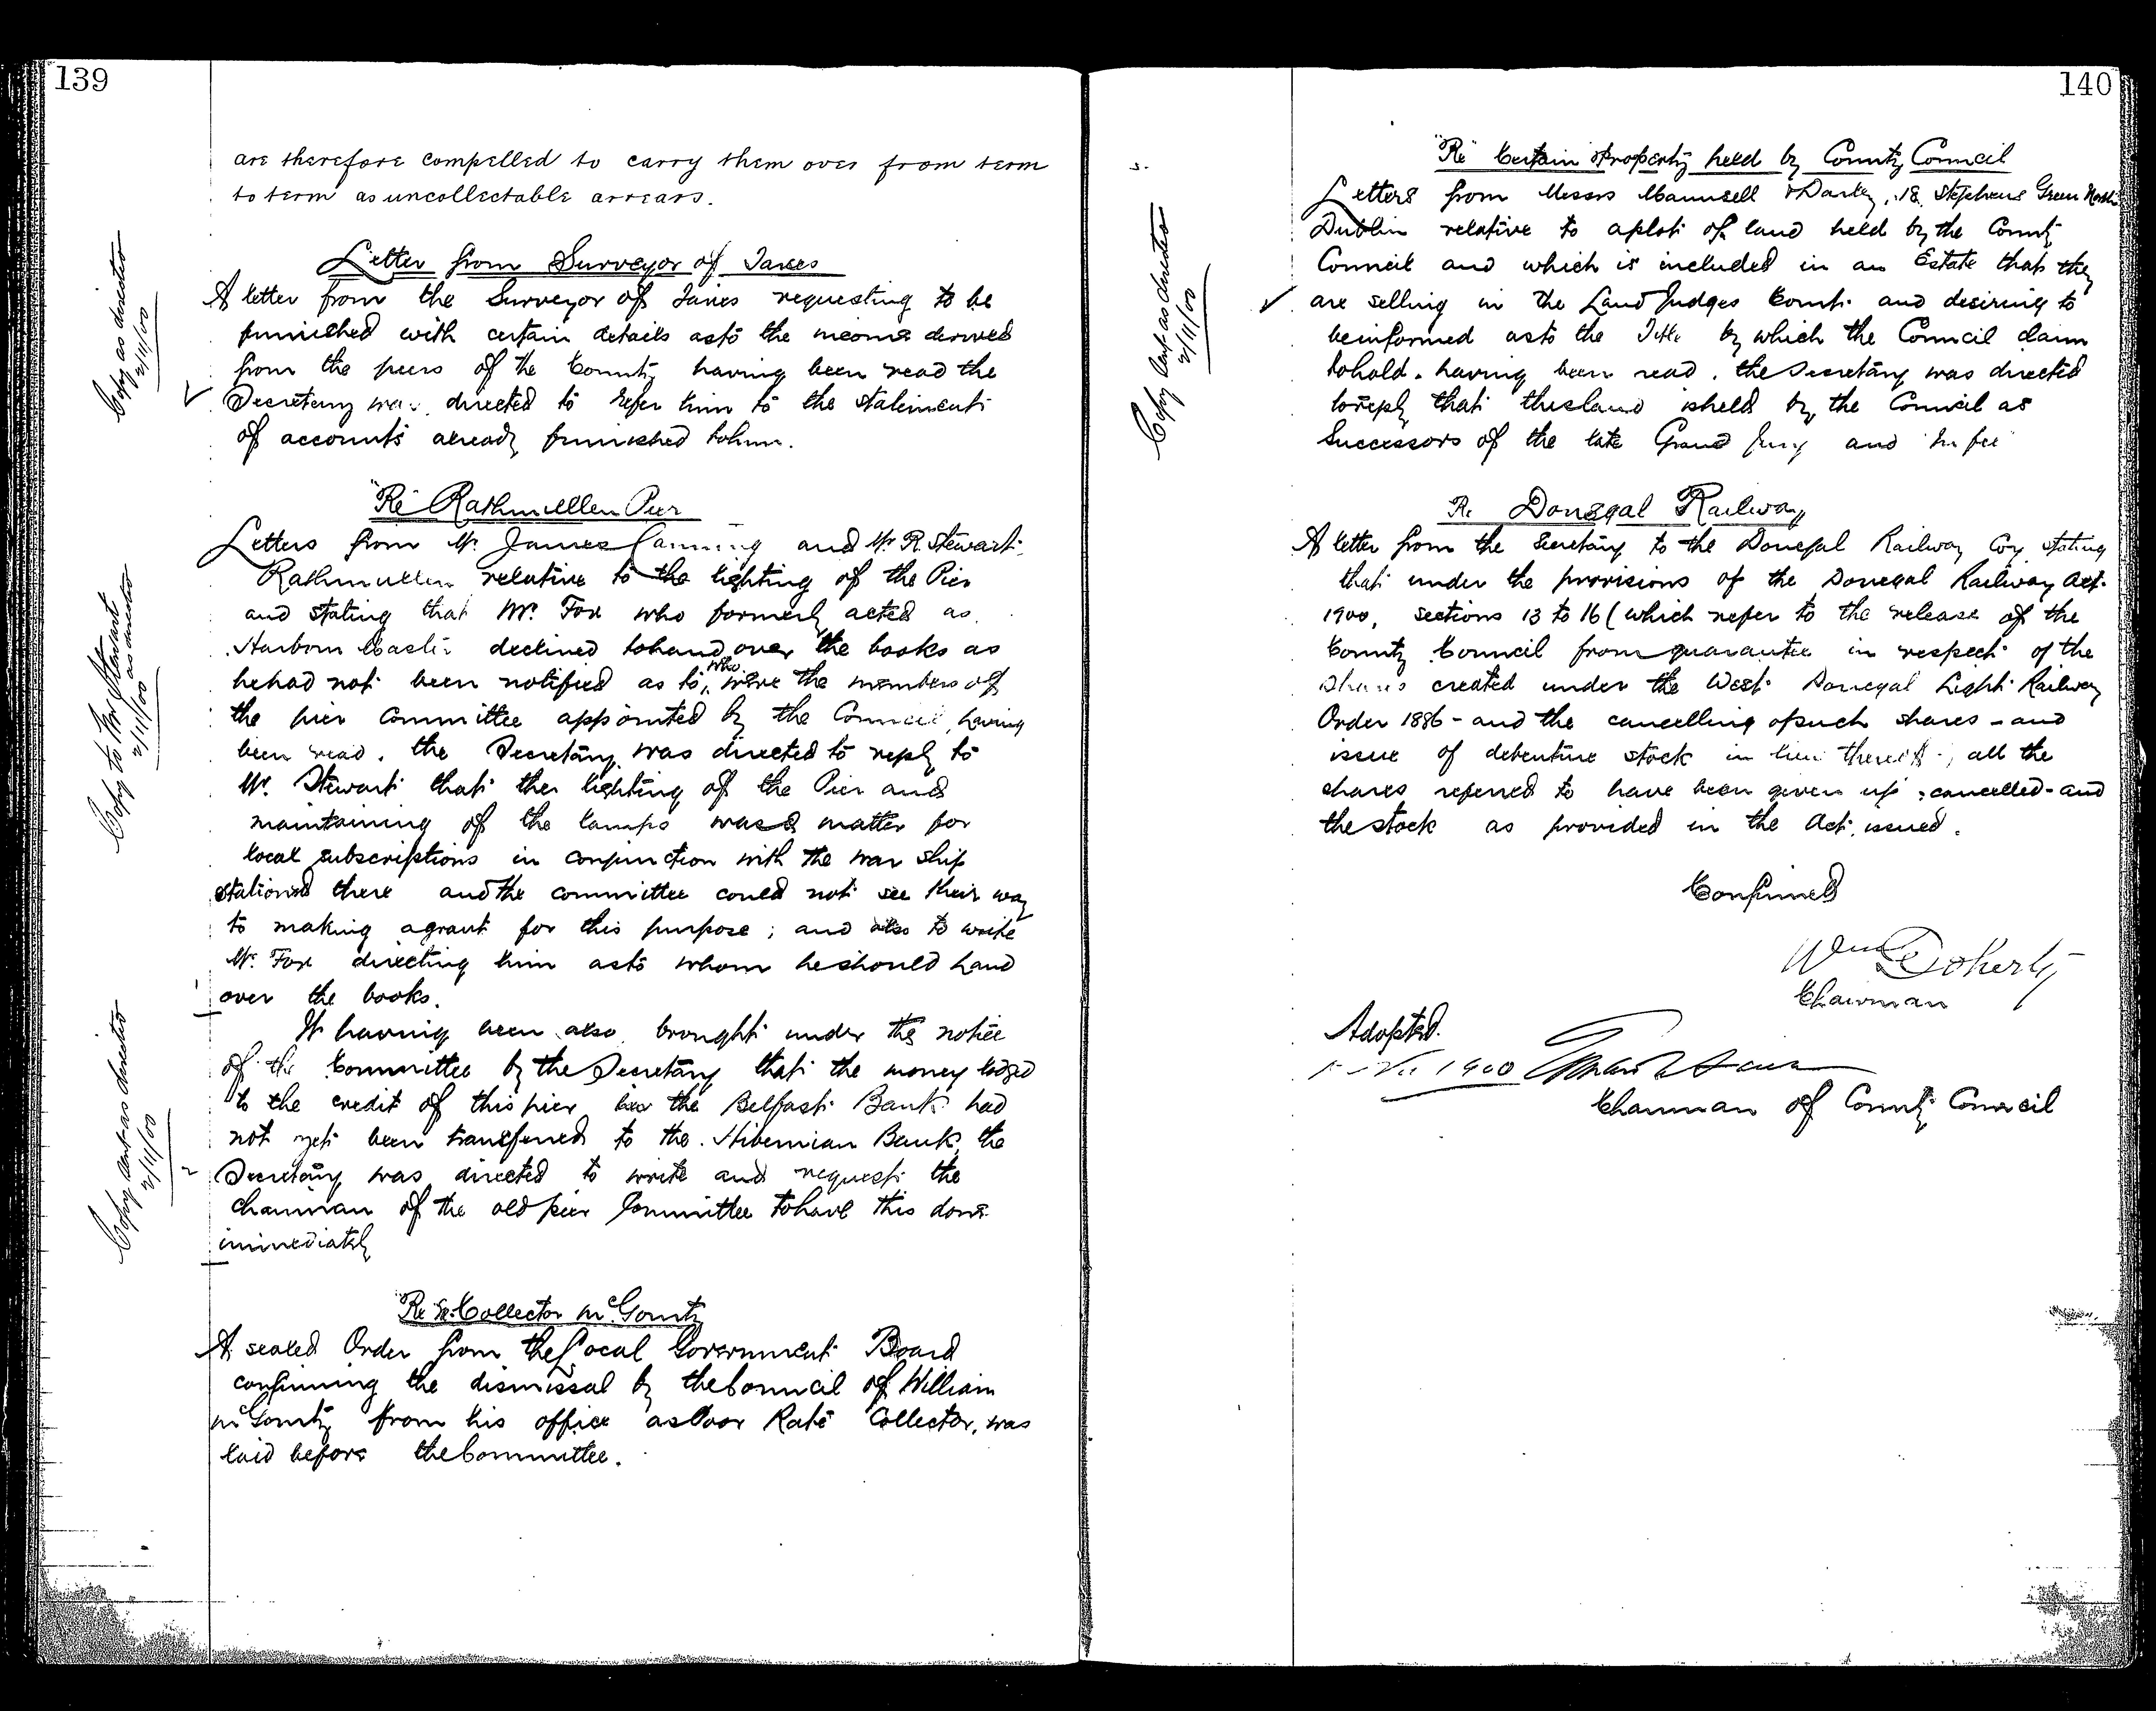 139
are therefore compelled to carry them over from term
to term as uncollectable arrears.
Letter from Surveyor of Taxes
A letter from the Surveyor of Taxes requesting to be
furnished with certain details as to the income derived
from the piers of the County having been read the
Secretary was directed to refer him to the statements
of accounts already furnished to him.
Copy as directed
2/11/00
"Re" Rathmullen Pier
Letters from Mr. James Canning and Mr. R. Stewart
Rathmullen relative to the lighting of the Pier
and stating that Mr. Fox who formerly acted as
Harbour Master declined to hand over the books as
he had not been notified as to who were the members of
the pier committee appointed by the Council, having
been read. the Secretary was directed to reply to
Mr. Stewart that the lighting of the Pier and
maintaining of the lamps was a matter for
local subscriptions in conjunction with the war ship
stationed there and the committee could not see their way
to making a grant for this purpose; and also to write
Mr. Fox directing him as to whom he should hand
over the books.
Copy to Mr Stewart
as directed
2/11/00
It having been also brought under the notice
of the Committee by the Secretary that the money lodged
to the credit of this pier in the Belfast Bank had
not yet been transferred to the Hibernian Bank, the
Secretary was directed to write and request the
chairman of the old pier Committee to have this done
immediately
Copy sent as directed
2/11/00
"Re" Collector McGonty
A sealed Order from the Local Government Board
confirming the dismissal by the Council of William
McGonty from his office as Poor Rate Collector, was
laid before the Committee.
140
"Re" Certain Property held by County Council
Letters from Messrs Maunsell & Darley, 18, Stephens Green North
Dublin relative to a plot of land held by the County
Council and which is included in an Estate that they
are selling in the Land Judges Court and desiring to
be informed as to the Title by which the Council claim
to hold. having been read. the Secretary was directed
to reply that the land is held by the Council as
Successors of the late Grand Jury and "In fee"
Copy sent as directed
2/11/00
Re Donegal Railway
A letter from the Secretary to the Donegal Railway Coy stating
that under the provisions of the Donegal Railway Act
1900, sections 13 to 16 (which refer to the release of the
County Council from guarantee in respect of the
Shares created under the West Donegal Light Railway
Order 1886 - and the cancelling of such shares - and
issue of debenture stock in lieu thereof -, all the
shares referred to have been given up, cancelled - and
the stock as provided in the Act, issued.
Confirmed
Wm Doherty
Chairman
Adopted.
1900
Chairman of County Council